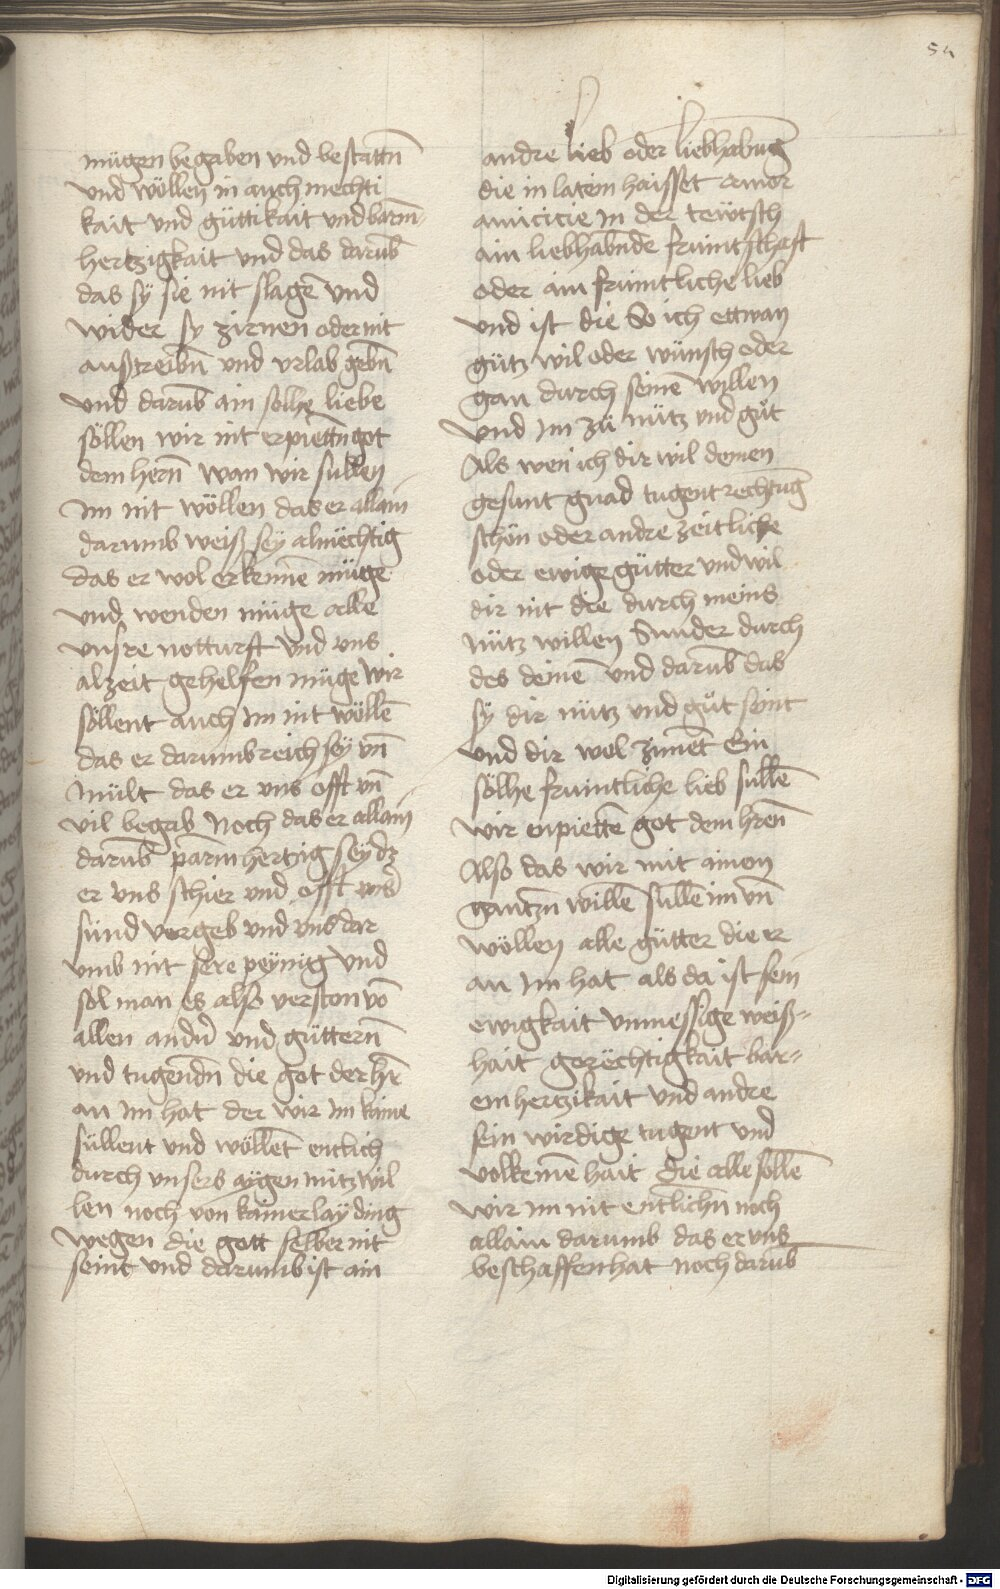 54
mügen begaben und bestattn̄
und wöllen in auch mechti
kait und güttikait und barm-
hertzigkait und das darūb
das sÿ sie nit slagē und
wider sy zirnen oder nit
außtreibn̄ und vrlab gebn̄
und darūb ain sollhe liebe
söllen wir nit erpiettn̄ got
dem hern̄ wan wir sullen
Im nit wöllen das er allain
darumb weiß sey almechtig
das er wol erkenne müge
und wenden müge alle
unsre notturft und uns
alzeit gehelfen müge wir
söllent auch Im nit wöllē
das er darumb reich sey vn̄
mült das er uns offt vn̄
vil begab Noch das er allain
darūb parmhertzig sey dz
er uns schier und offt
sünd vergeb und uns dar
umb nit sere peÿnig und
sol man es also verston vō
allen andn̄ und güttern̄
und tugendn̄ die got der hr̄
an Im hat der wir Im kaine
süllent und wöllēt entlich
durch unsers aÿgen nutz wil
len noch von kainerlaÿ ding
wegen die gott selber nit
seint und darumb ist ain
andre lieb oder liebhabung
die in latein haisset amor
amicicie In der tewtsch
ain liebhabn̄de fruntschaft
oder ain fruntliche lieb
und ist die So ich ettwan
gütz wil oder wünsch oder
gan durch seinē willen
und Im zü nütz und güt
Als wen ich dir wil deinen
gesunt gnad tugent rechtug
schön oder andre zeitliche
oder ewige gütter und wil
dir nit die durch meins
nütz willen Sunder durch
des deinē und darūb das
sÿ dir nütz und güt seint
und dir wol zimēt Ein
sölhe fruntliche lieb süllē
wir enpiettē got dem hrēn
Also das wir mit ainem
gantzn̄ willē süllē im vn̄
wöllen alle gütter die er
an Im hat als da ist sein
ewigkait unmessige weiß-
hait gerëchtigkait bar-
emhertzikait und andre
sein wirdige tugent und
volkemēhait die alle söllē
wir im nit entlichn̄ noch
allain darumb das er uns
beschaffen hat noch darūb
Digitalisierung gefördert durch die Deutsche Forschungsgemeinschaft - DFG